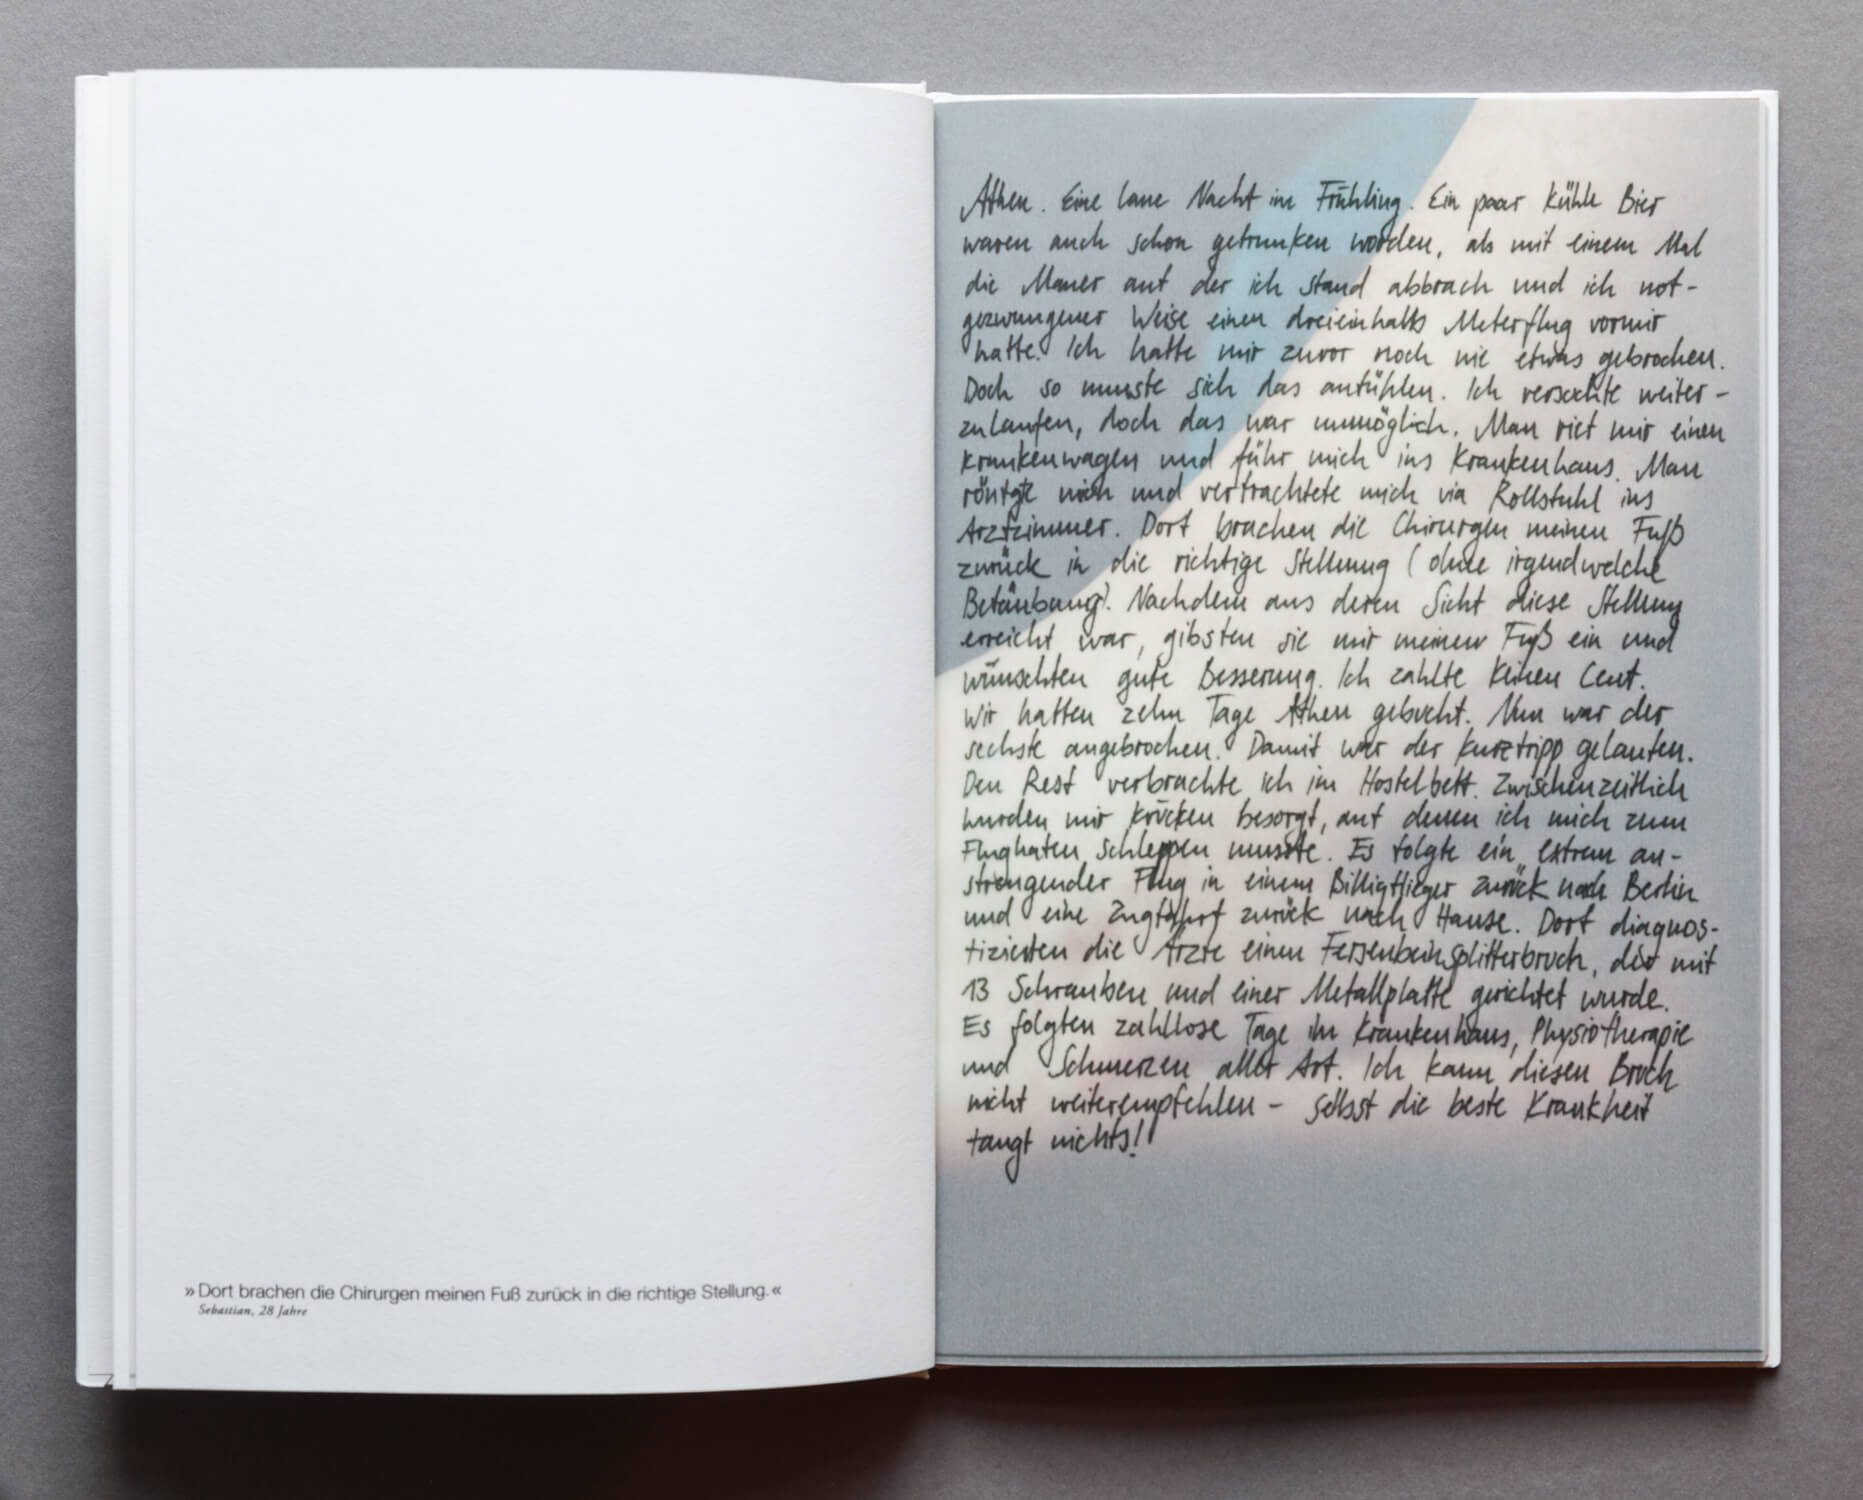 »Dort brachen die Chirurgen meinen Fuß zurück in die richtige Stellung.«
Sebastian, 28 Jahre
Athen. Eine laue Nacht im Frühling. Ein paar kühle Bier
waren auch schon getrunken worden, als mit einem Mal
die Mauer auf der ich stand abbrach und ich not-
gezwungener Weise einen dreieinhalb Meterflug vor mir
hatte. Ich hatte mir zuvor noch nie etwas gebrochen.
Doch so musste sich das anfühlen. Ich versuchte weiter-
zulaufen, doch das war unmöglich. Man rief mir einen
Krankenwagen und führ mich ins Krankenhaus. Man
röntgte mich und verfrachtete mich via Rollstuhl ins
Arztzimmer. Dort brachen die Chirurgen meinen Fuß
zurück in die richtige Stellung (ohne irgendwelche
Betäubung). Nachdem aus deren Sicht diese Stellung
erreicht war, gibsten sie mir meinen Fuß ein und
wünschten gute Besserung. Ich zahlte keinen Cent.
Wir hatten zehn Tage Athen gebucht. Nun war der
sechste angebrochen. Damit war der Kurztripp gelaufen.
Den Rest verbrachte ich im Hostelbett. Zwischenzeitlich
wurden mir Krücken besorgt, auf denen ich mich zum
Flughafen schleppen musste. Es folgte ein extrem an-
strengender Flug in einem Billigflieger zurück nach Berlin
und eine Zugfahrt zurück nach Hause. Dort diagnos-
tizierten die Ärzte einen Fersenbeinsplitterbruch, der mit
13 Schrauben und einer Metallplatte gerichtet wurde.
Es folgten zahllose Tage im Krankenhaus, Physiotherapie
und Schmerzen aller Art. Ich kann diesen Bruch
nicht weiterempfehlen – selbst die beste Krankheit
taugt nichts!